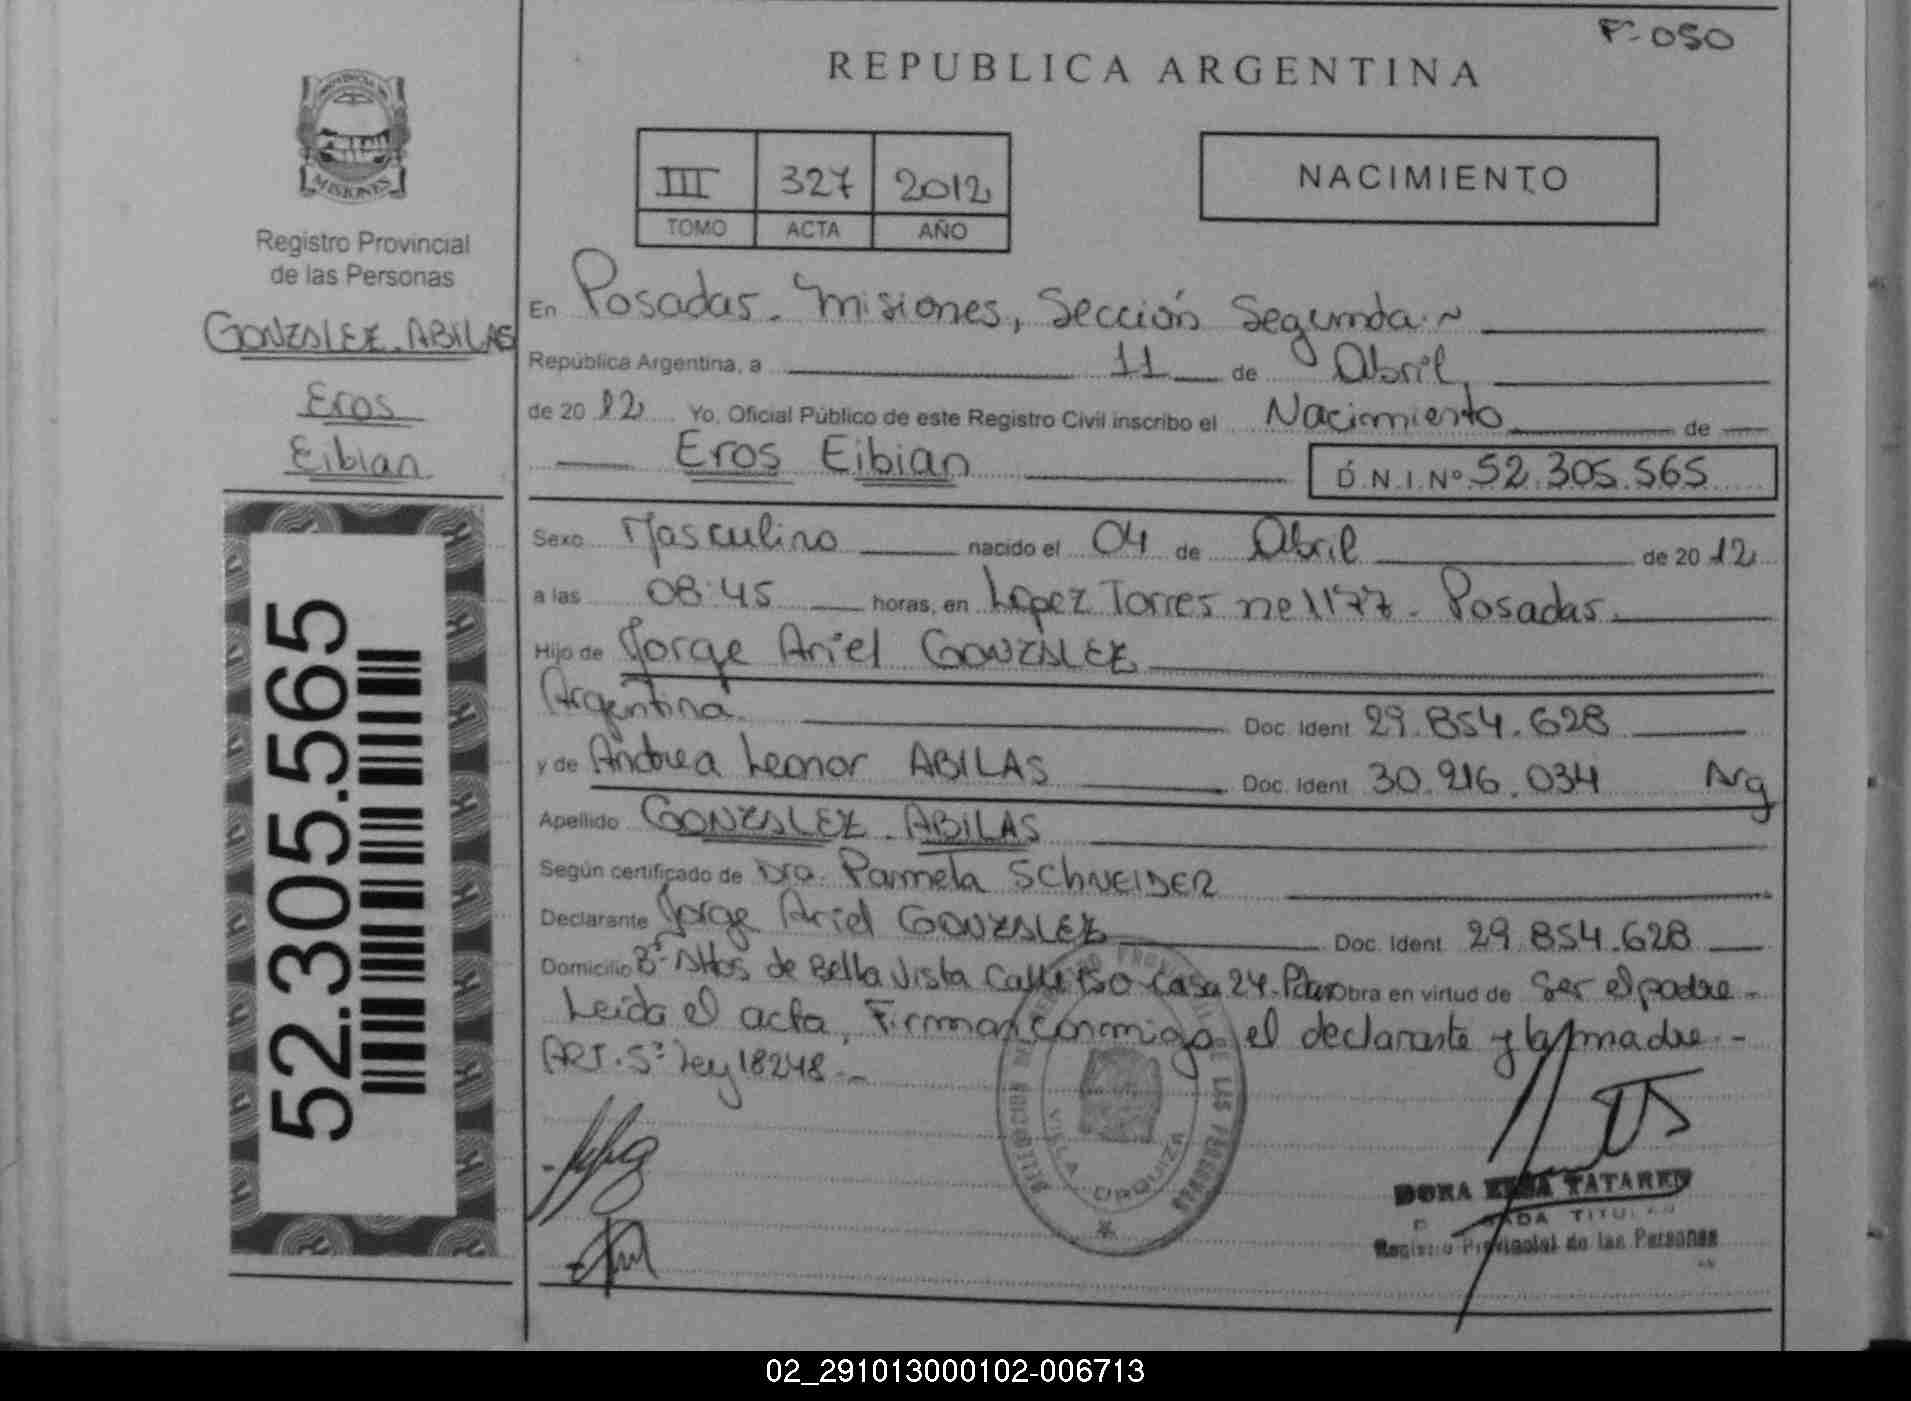 Fº 050
REPUBLICA ARGENTINA
III 327 2012
TOMO ACTA AÑO
NACIMIENTO
MISIONES
Registro Provincial
de las Personas
GONZALEZ ABILAS
Eros
Eibian
52.305.565
En Posadas. Misiones, Sección Segunda.
República Argentina, a 11 de Abril,
de 2012 Yo, Oficial Público de este Registro Civil inscribo el Nacimiento de
Eros Eibian D.N.I.Nº 52.305.565
Sexo Masculino nacido el 04 de Abril de 2012
a las 08:45 horas, en López Torres nº 1177 - Posadas.
Hijo de Jorge Ariel GONZALEZ
Argentina. Doc. Ident. 29.854.628
y de Andrea Leonor ABILAS Doc. Ident. 30.916.034 Arg
Apellido GONZALEZ ABILAS
Según certificado de Dra. Pamela SCHNEIDER
Declarante Jorge Ariel GONZALEZ Doc. Ident. 29.854.628
Domicilio Bº Altos de Bella Vista Calle Casa 24. obra en virtud de Ser el padre -
Leída el acta, Firman conmigo el declarante y la madre. -
ART. 5º Ley 18248. -
VILLA URQUIZA
DORA TATAREN
TITULAR
Registro Provincial de las Personas
02_291013000102-006713